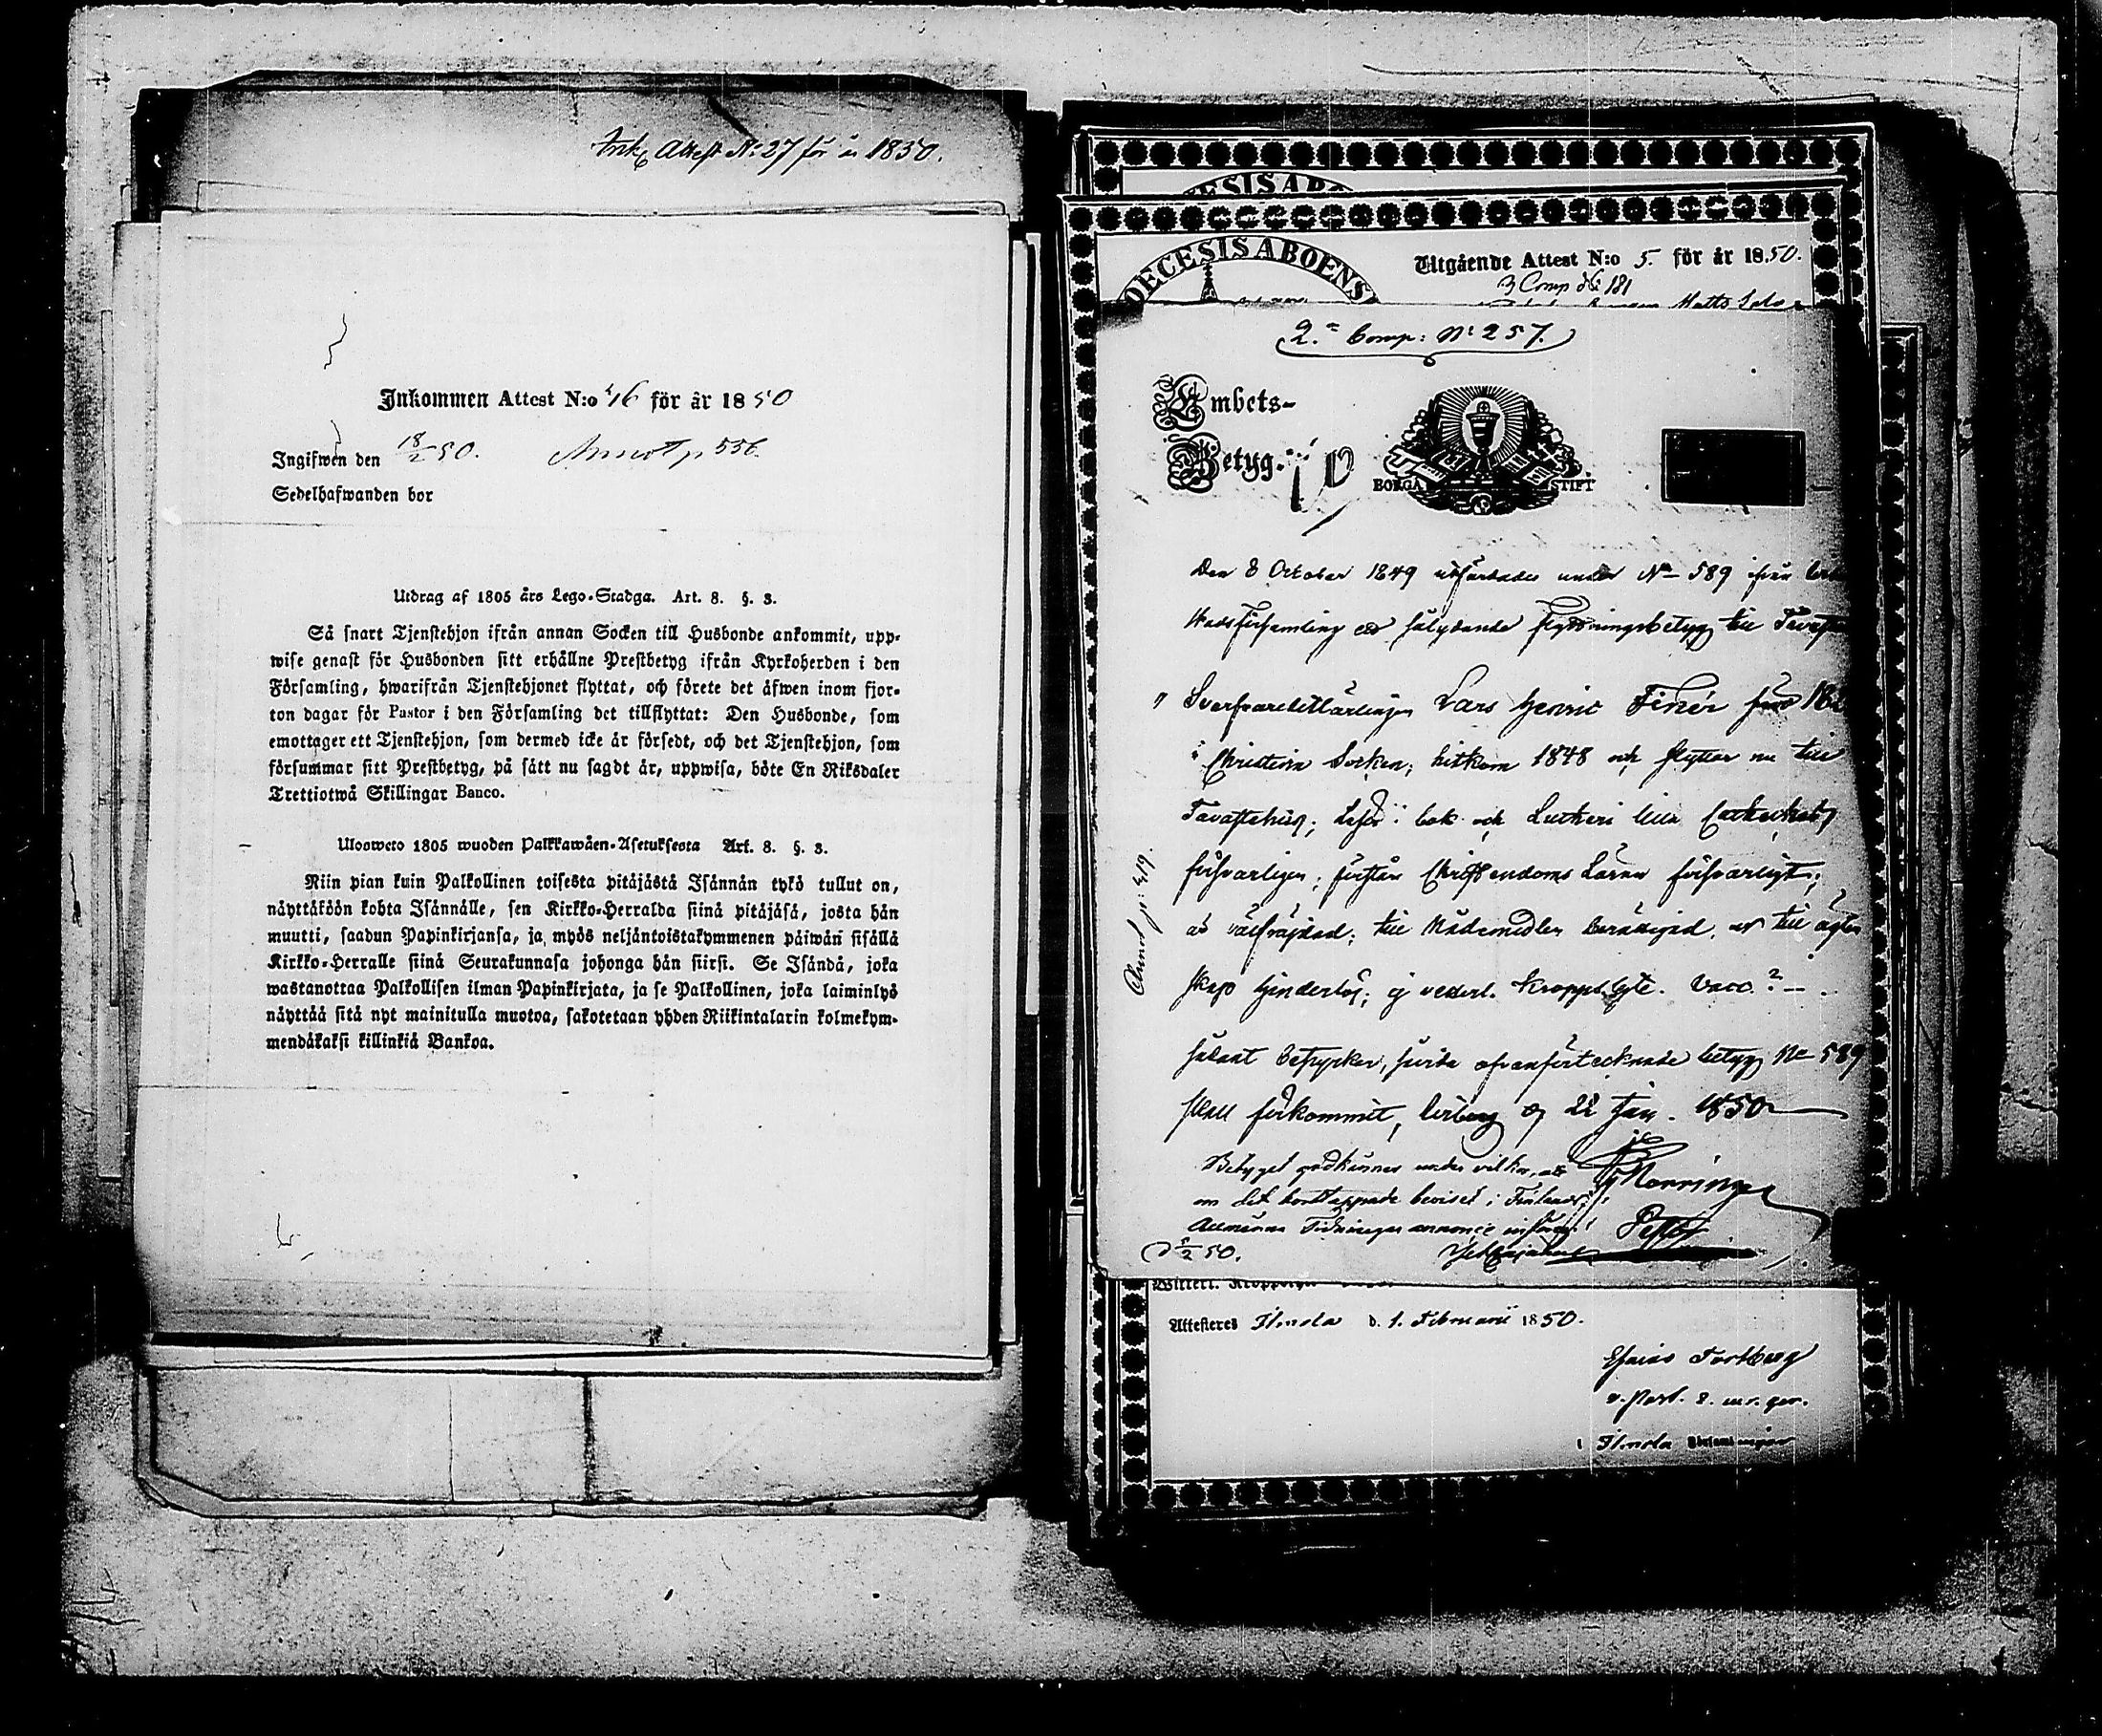 Ink. Attest N: 27 för år 1850.
Inkommen Attest N:o 46 för år 1850
Ingifwen den 18/2 50. Annot p 556.
Sedelhafwanden bor
Utdrag af 1805 års Lego-Stadga. Art. 8. §. 3.
Så snart Tjenstehjon ifrån annan Socken till Husbonde ankommit, upp-
wise genast för Husbonden sitt erhållne Prestbetyg ifrån Kyrkoherden i den
Församling, hwarifrån Tjenstehjonet flyttat, och förete det äfwen inom fjor-
ton dagar för Pastor i den Församling det tillflyttat: Den Husbonde, som
emottager ett Tjenstehjon, som dermed icke är försedt, och det Tjenstehjon, som
försummar sitt Prestbetyg, på sätt nu sagdt är, uppwisa, böte En Riksdaler
Trettiotwå Skillingar Banco.
Ulosweto 1805 wuoden Palkkawäen-Asetuksesta Art. 8. §. 3.
Niin pian kuin Palkollinen toisesta pitäjästä Isännän tykö tullut on,
näyttäköön kohta Isännälle, sen Kirkko-Herralda siinä pitäjäsä, josta hän
muutti, saadun Papinkirjansa, ja myös neljäntoistakymmenen päiwän sisällä
Kirkko-Herralle siinä Seurakunnasa johonga hän siirsi. Se Isändä, joka
wastanottaa Palkollisen ilman Papinkirjata, ja se Palkollinen, joka laiminlyö
näyttää sitä nyt mainitulla muotoa, sakotetaan yhden Riikintalarin kolmekym-
mendäkaksi killinkiä Bankoa.
DECESIS ABOENS
Utgående Attest N:o 5. för år 1850.
3 Comp № 181
Matts
2:a Comp: N: 257.
Embets-
Betyg.
BORGÅ STIFT
Den 8 October 1849 utfärdades under No 589 ifrån
stadsförsamling ett sålydande flyttningsbetyg till
" Svarfvarelärlingen Lars Henric Finér född
i Christina Socken, hitkom 1848 och flyttar nu till
Tavastehus; läser i bok och Lutheri lilla Cateches
försvarligen; förstår Christendoms Läran försvarligt;
är välfräjdad; till Nådemedlen berättigad, och till ägten
skap hinderlös; ej vederl. Kroppslyte. Vacc. ? — .
Annot p: 419.
sådant betygkar, sedan ofvanförtecknade betyg No 589
skall förkommit, d 22 Jan. 1850
Betyget godkännes under vilkor, att
om det borttappade beviset i Finlands
Allmänna Tidningar annonce införes.
d 5/2 50.
Attesteres Ilmola d. 1. Februarii 1850.
Esaias Fortberg
v. Past.
i Ilmola